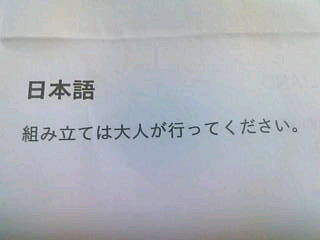 日本語
組み立ては大人が行ってください。